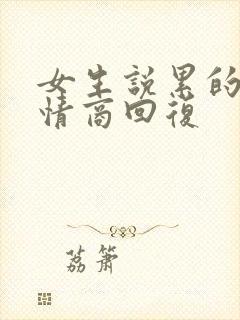 女生說累的
情商回復
荔簫